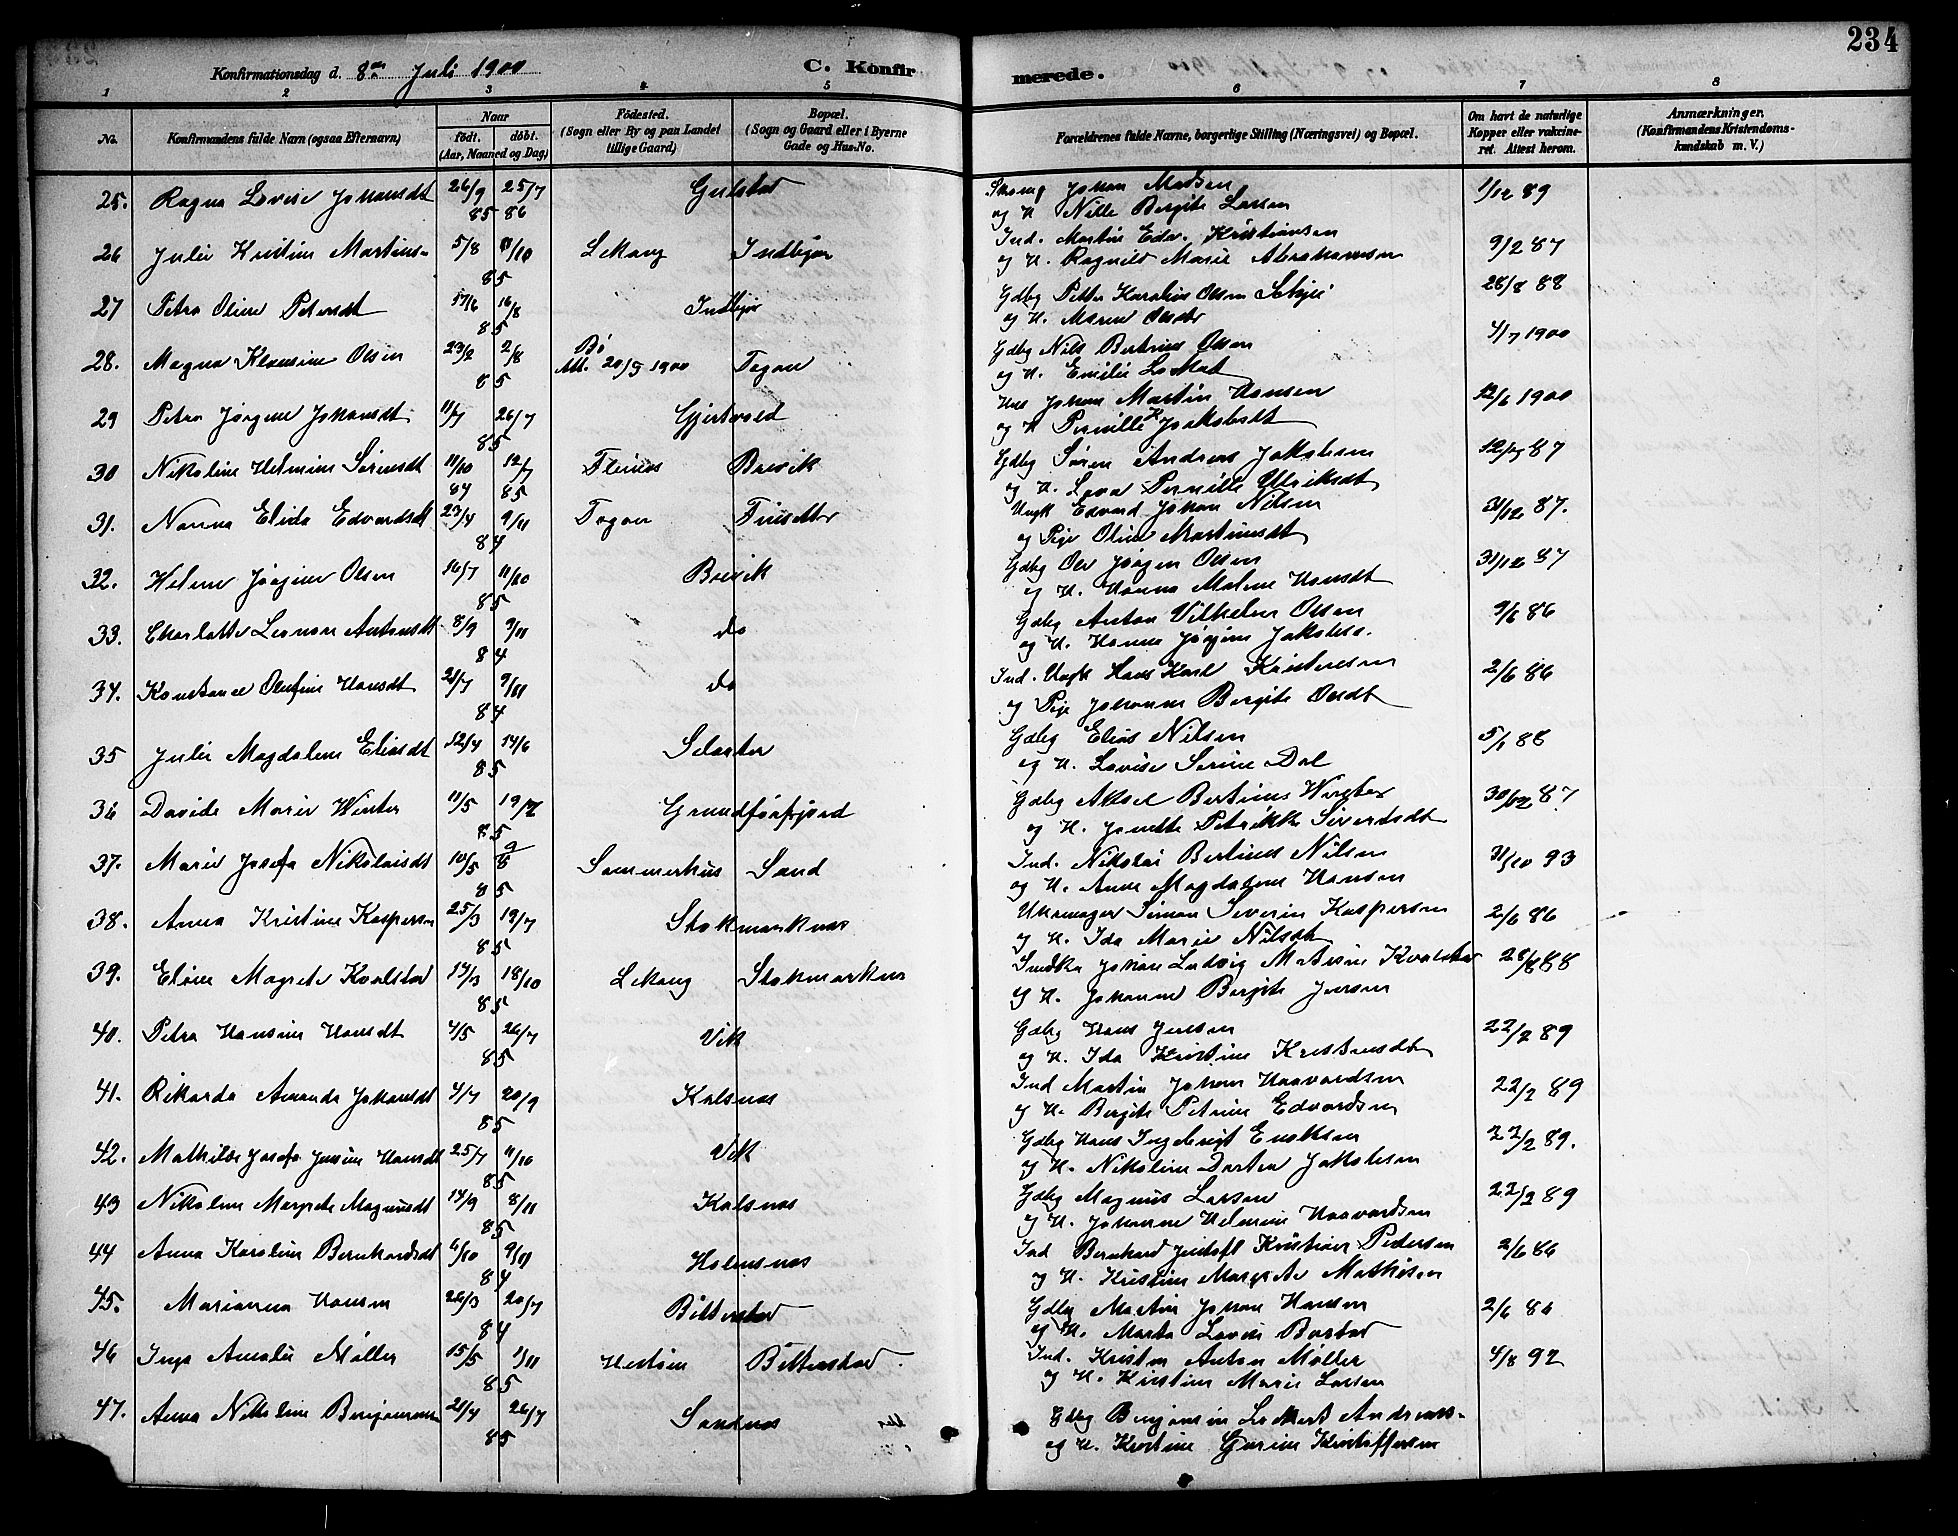 234
Konfirmationsdag d. 8de Juli 1900 C. Konfirmerede.
1 2 3 4 5 6 7 8
No. Konfirmandens fulde Navn (ogsaa Efternavn) Naar födt. döbt. (Aar, Maaned og Dag) Födested. (Sogn eller By og paa Landet tillige Gaard) Bopæl. (Sogn og Gaard eller i Byerne Gade og Hus-No. Forældrenes fulde Navne, borgerlige Stilling (Næringsvei) og Bopæl. Om havt de naturlige Kopper eller vaccineret. Attest herom. Anmærkninger. (Konfirmandens Kristendomskundskab m. V.)
25. Ragna Lovise Johansdt 26/9 85 25/7 86 Gulstad Johan Madsen 1/12 89
og H. Nille Bergite Larsen
26 Julie Kristine Martins- 5/8 11/10 85 Lekang Indbjor Ind. Martin Edv. Kristiansen 9/2 87
og H. Ragnild Marie Abrahamsen
27 Petra Oline Petersdt 17/6 16/8 85 Indbjor Gdbg Petter Karolius Olsen 28/8 88
og H. Maren Olsdtr
28. Magna Klausine Olsen 23/2 2/8 85 Bö Att. 20/5 1900 Fogan Gdbg Nils Bertinus Olsen 4/7 1900
og H. Emilie
29 Petra Jörgine Johansdt 11/7 26/7 85 Gjertvold Johan Martin Hansen 12/6 1900
og H. Pernille Jakobsdt
30 Nikoline Helmine Sörensdt 11/10 84 12/7 85 Fleines Breivik Gdbg Sören Andreas Jakobsen 12/7 87
og H. Pernille Ulriksdt
31. Nanna Elida Edvardsdt 23/4 9/11 84 Fogan Finsætter Ungk Edvard Johan Nilsen 31/12 87.
og Pige Oline Martinusdt
32. Helene Jörgine Olsen 16/7 11/10 85 Breivik Gdbg Ole Jörgen Olsen 31/12 87
og H. Hanna Malene Hansdt
33. Charlotte Leonore Antonsdt 8/9 9/11 84 do Gdbg Anton Vilhelm Olsen 9/6 86
og H. Hanna Jörgine Jakobsd.
34. Konstance Olufine Hansdt 21/7 9/11 84 do Ind. Ungk Hans Karl Kristensen 2/6 86
og Pige Johanna Bergite Olsdt
35 Julie Magdalene Eliasdt 12/4 14/6 85 Selnater Gdbg Elias Nilsen 5/1 88
og H. Lovise Serine Dal
36 Davida Marie Winter 11/5 19/7 85 Grundförfjord Gdbg Aksel Bertinus Winter 30/12 87
og H. Jonette Petrikke Sivertsdt
37. Marie Josefa Nikolaisdt 10/5 9/8 85 Sommerhus Sand Ind. Nikolai Bertinus Nilsen 31/10 93
og H. Anne Magdalene Hansen
38. Anna Kristine Kaspersen 25/3 19/7 85 Stokmarknes Urmager Simon Severin Kaspersen 2/6 86
og H. Ida Marie Nilsdt
39. Eline Magrete Kvalstad 14/3 18/10 85 Lekang Stokmarknes Johan Ludvig Kvalstad 28/8 88
og H. Johanne Bergite Jensen
40. Petra Hansine Hansdt 4/5 26/7 85 Vik Gdbg Hans Jensen 22/2 89
og H. Ida Kristine Kristensdt
41. Rikarda Amanda Johansdt 4/7 20/9 85 Kalsnes Ind Martin Johan Haavardsen 22/2 89
og H. Bergite Petrine Edvardsen
42. Mathilde Josefa Jensine Hansdt 25/7 11/10 85 Vik Gdbg Hans Ingebrigt Enoksen 22/2 89.
og H. Nikoline Dortea Jakobsen
43 Nikoline Margrete Magnusdt 14/9 8/11 85 Kalsnes Gdbg Magnus Larsen 22/2 89
og H. Johanne Helmine Haavardsen
44 Anna Karoline Bernhardsdt 6/10 9/11 84 Holmsnes Ind Bernhard Kristian Pedersen 2/6 86
og H. Kristine Margrete Mathisen
45. Marianna Hansen 26/3 20/7 84 Bitterstad Gdbg Martin Johan Hansen 2/6 86
og H. Marta Lovise
46 Inga Amalie Möller 15/5 1/11 85 Bitterstad Ind. Kristen Anton Möller 4/8 92
og H. Kirstine Marie Larsen
47. Anna Nikoline Benjaminsen 21/4 26/7 85 Sandnes Gdbg Benjamin Andreas-
og H. Kristine Gurine Kristoffersen